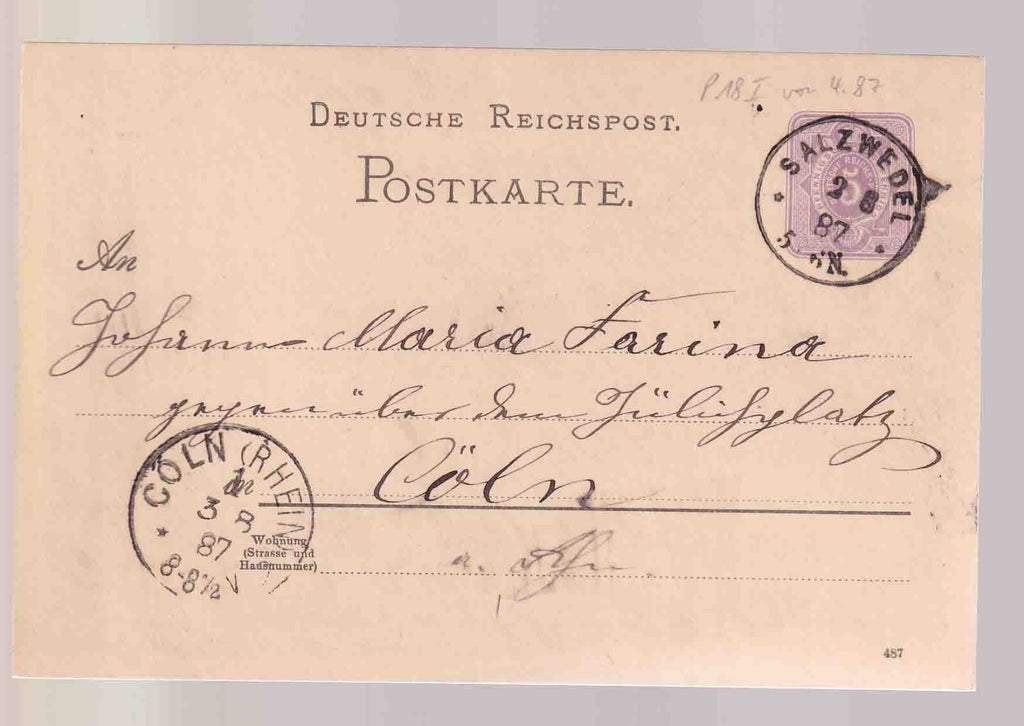 P 18 I von 4.87
DEUTSCHE REICHSPOST.
POSTKARTE.
SALZWEDEL
2 8
87
5 N.
5
An
Johann Maria Farina
gegenüber dem Jülichsplatz
CÖLN (RHEIN)
3 8
87
8-8½ V
in
Cöln
Wohnung
(Strasse und
Hausnummer)
a. Rhn.
487